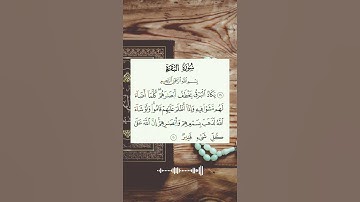 سُورَةُ البَقَرَةِ
بِسْمِ اللَّهِ الرَّحْمَٰنِ الرَّحِيمِ
يَكَادُ الْبَرْقُ يَخْطَفُ أَبْصَارَهُمْ كُلَّمَا أَضَاءَ
لَهُم مَّشَوْا فِيهِ وَإِذَا أَظْلَمَ عَلَيْهِمْ قَامُوا وَلَوْ شَاءَ
اللَّهُ لَذَهَبَ بِسَمْعِهِمْ وَأَبْصَارِهِمْ إِنَّ اللَّهَ عَلَىٰ
كُلِّ شَيْءٍ قَدِيرٌ